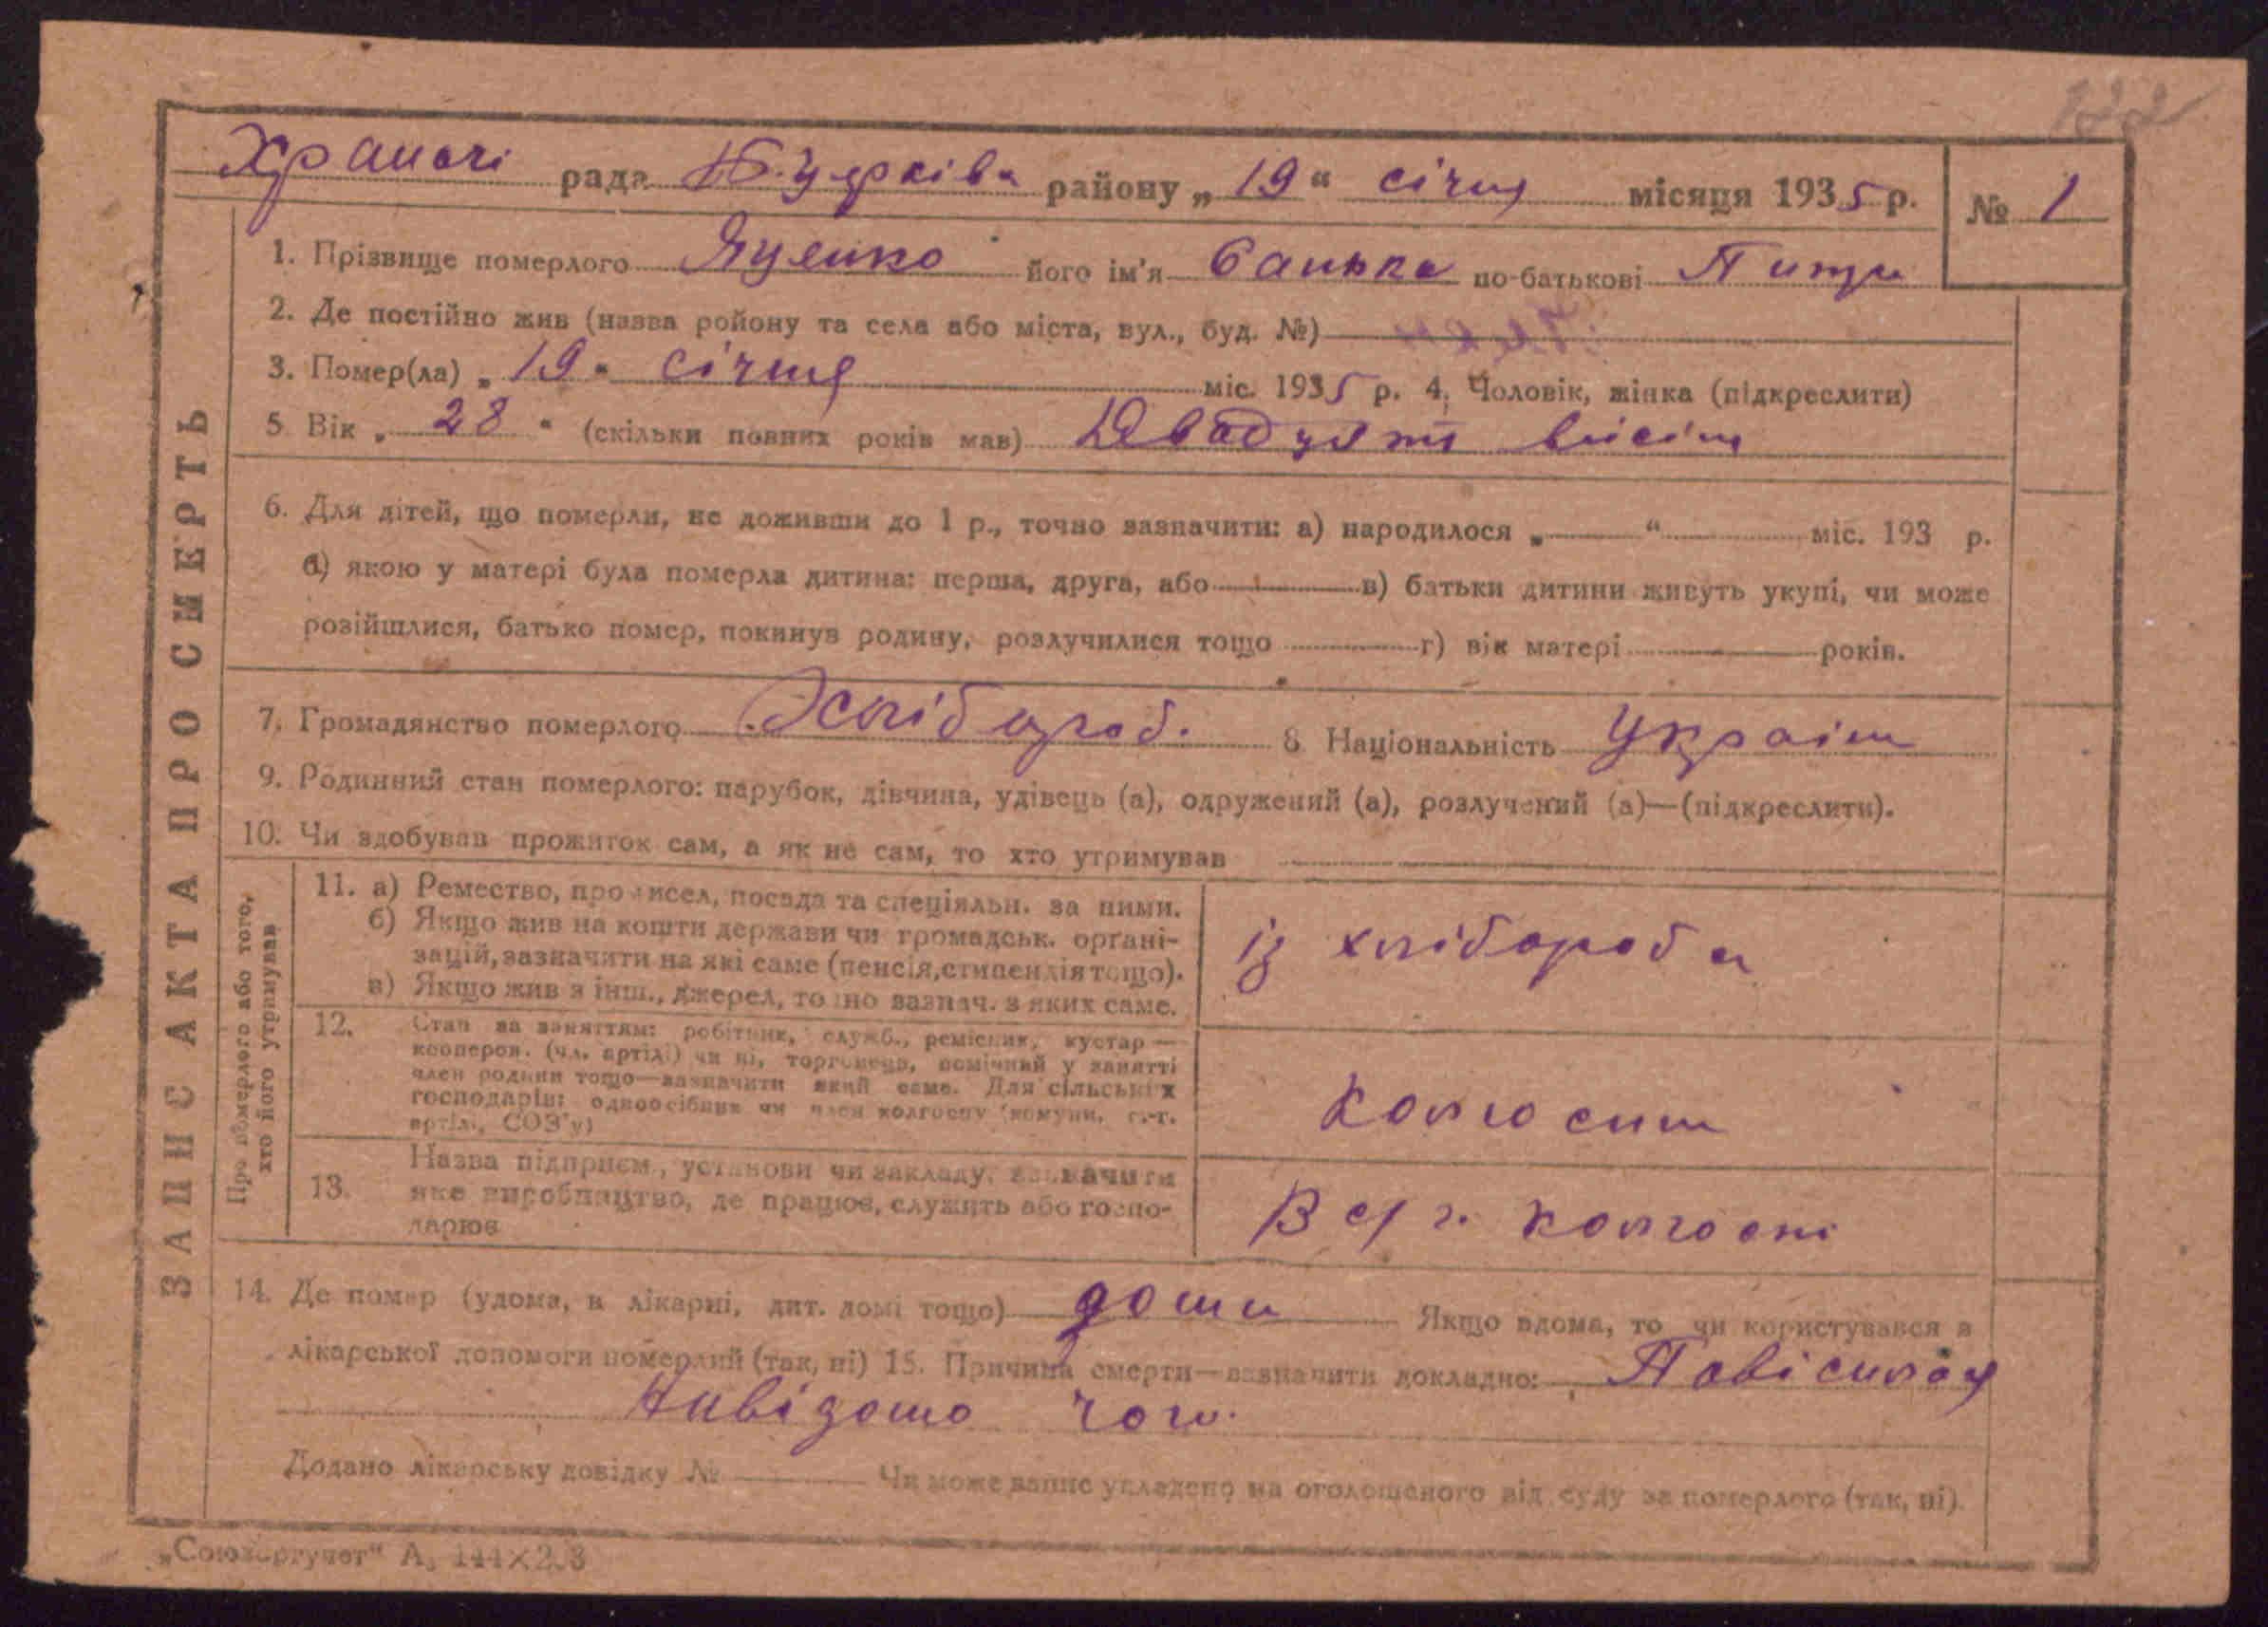 122
Храпачі рада Б.Церківи району „ 19 “ січня місяця 1935 р. № 1
1. Прізвище померлого Яценко його ім'я Санька по-батькові
2. Де постійно жив (назва ройону та села або міста, вул., буд. №)
3. Помер(ла) „ 19 “ січня міс. 1935 р. 4. Чоловік, жінка (підкреслити)
5 Вік „ 28 “ (скільки повних років мав) Двадцять вісім
6. Для дітей, що померли, не доживши до 1 р., точно зазначити: а) народилося „ “ міс. 193 р.
б) якою у матері була померла дитина: перша, друга, або в) батьки дитини живуть укупі, чи може
розійшлися, батько помер, покинув родину, розлучилися тощо г) вік матері років.
7. Громадянство померлого Хлібороб. 8. Національність Україн
9. Родинний стан померлого: парубок, дівчина, удівець (а), одружений (а), розлучений (а)—(підкреслити).
10. Чи здобував прожиток сам, а як не сам, то хто утримував
ЗАПИС АКТА ПРО СМЕРТЬ
Про померлого або того,
хто його утримував
11. а) Ремество, промисел, посада та спеціяльн. за ними.
б) Якщо жив на кошти держави чи громадськ. органі-
зацій, зазначити на які саме (пенсія, стипендія тощо).
в) Якщо жив з інш., джерел, точно зазнач. з яких саме.
із хлібороба
12. Стан за заняттям: робітник, служб., ремісник, кустар—
кооперов. (чл. артілі) чи ні, торговець, помічний у занятті
член родини тощо—зазначити який саме. Для сільських
господарів: одноосібник чи член колгоспу (комуни, с.-г.
артілі, СОЗ'у)
колгоспн
13. Назва підприєм., установи чи закладу, зазначити
яке виробництво, де працює, служить або госпо-
дарює
В с/г. колгоспі
14. Де помер (удома, в лікарні, дит. домі тощо) дома Якщо вдома, то чи користувався з
лікарської допомоги померлий (так, ні) 15. Причина смерти—зазначити докладно: Павісилась
Нивідомо чого.
Додано лікарську довідку № Чи може запис укладено на оголошеного від суду за померлого (так, ні).
„Союзоргучет“ А₅ 144×2.3